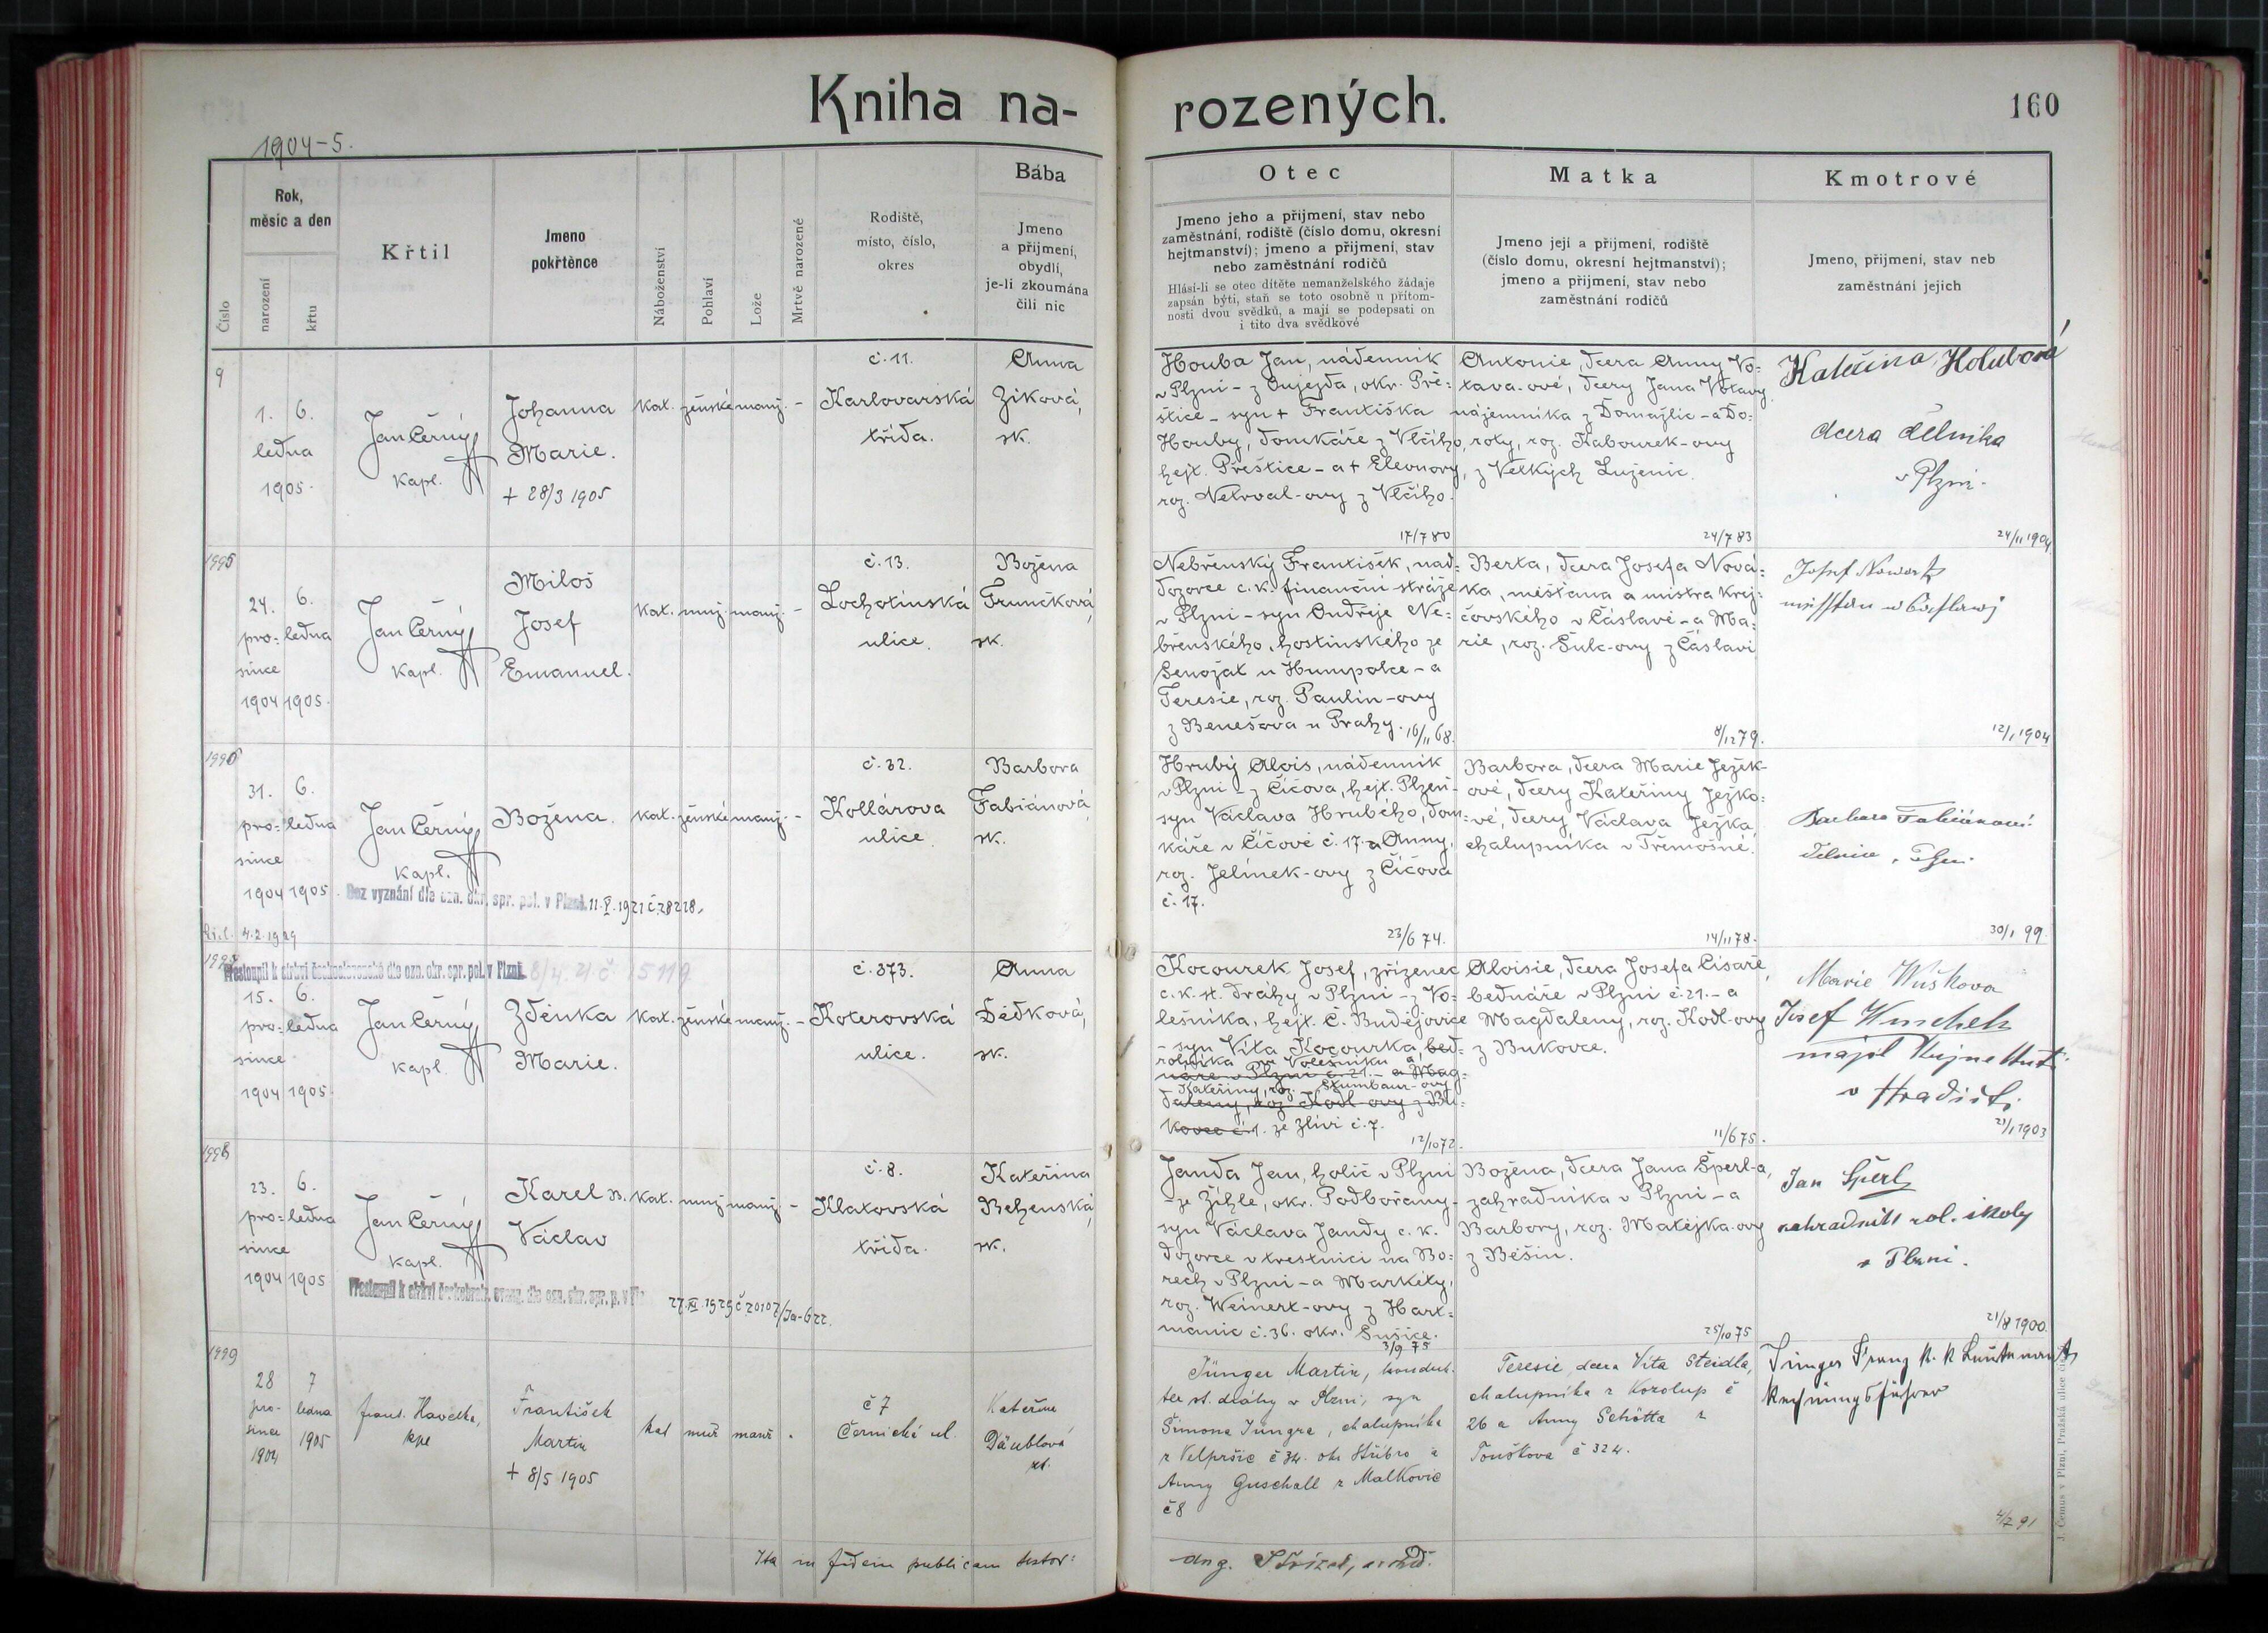 Kniha na-
rozených.
160
1904-5.
Číslo
Rok,
měsíc a den
narození
křtu
Křtil
Jmeno
pokřtěnce
Náboženství
Pohlaví
Lože
Mrtvě narozené
Rodiště,
místo, číslo,
okres
Bába
Jmeno
a příjmení,
obydlí,
je-li zkoumána
čili nic
Otec
Jmeno jeho a příjmení, stav nebo
zaměstnání, rodiště (číslo domu, okresní
hejtmanství); jmeno a příjmení, stav
nebo zaměstnání rodičů
Hlásí-li se otec dítěte nemanželského žádaje
zapsán býti, staň se toto osobně u přítom-
nosti dvou svědků, a mají se podepsati on
i tito dva svědkové
Matka
Jmeno její a příjmení, rodiště
(číslo domu, okresní hejtmanství);
jmeno a příjmení, stav nebo
zaměstnání rodičů
Kmotrové
Jmeno, příjmení, stav neb
zaměstnání jejich
9
1. 6.
ledna
1905.
Jan Černý
kapl.
Johanna
Marie.
+ 28/3 1905
kat. ženské manž. -
č. 11.
Karlovarská
třída.
Anna
Ziková,
zk.
Houba Jan, nádenník
v Plzni - z Oujezda, okr. Pře-
štice - syn + Františka
Houby, domkáře z Vlčího,
hejt. Přeštice - a + Eleonory,
roz. Netrval-ovy z Vlčího.
17/7 80
Antonie, dcera Anny Vo-
tava-ové, dcery Jana Votavy
nájemníka z Domažlic - a Do-
roty, roz. Kabourek-ovy
z Velkých Lujenic.
24/7 83
Kateřina Holubová
dcera dělníka
v Plzni.
24/11 1904
1995
24. 6.
pro- ledna
since
1904 1905.
Jan Černý
kapl.
Miloš
Josef
Emanuel.
kat. muž. manž. -
č. 13.
Lochotínská
ulice.
Božena
Frunčková,
zk.
Nebřenský František, nad-
dozorce c. k. finanční stráže
v Plzni - syn Ondřeje Ne-
břenského, hostinského ze
Senožat u Humpolce - a
Teresie, roz. Paulin-ovy
z Benešova u Prahy. 16/11 68.
Berta, dcera Josefa Nová-
ka, měšťana a mistra krej-
čovského v Čáslavě - a Ma-
rie, roz. Šulc-ovy z Čáslavi
8/12 79.
12/1 1904
1996
31. 6.
pro- ledna
since
1904 1905.
Jan Černý
kapl.
Božena.
kat. ženské manž. -
č. 32.
Kollárova
ulice.
Barbora
Fabiánová,
zk.
Bez vyznání dle ozn. okr. spr. pol. v Plzni 11. V. 1921 č. 28228.
4. 2. 1929
Hrubý Alois, nádenník
v Plzni - z Číčova, hejt. Plzeň -
syn Václava Hrubého, dom-
káře v Číčově č. 17. a Anny,
roz. Jelínek-ovy z Číčova
č. 17.
23/6 74.
Barbora, dcera Marie Ježek-
ové, dcery Kateřiny Ježko-
vé, dcery Václava Ježka,
chalupníka v Třemošné.
14/11 78.
Barbara Fabiánová
30/1 99.
Přestoupil k církvi československé dle ozn. okr. spr. pol. v Plzni 8/4. 21 č. 15119
15. 6.
pro- ledna
since
1904 1905.
Jan Černý
kapl.
Zdeňka
Marie.
kat. ženské manž. -
č. 373.
Koterovská
ulice.
Anna
Dědková,
zk.
Kocourek Josef, zřízenec
c. k. st. dráhy v Plzni - z Vo-
lešníka, hejt. Č. Budějovice
- syn Víta Kocourka, bed-
rolníka ve Volešníku a
náře v Plzni č. 21. - a Mag-
Kateřiny, roz. Štumbaur-ovy
daleny, roz. Kodl-ovy z Bu-
kovce č. 1. ze Zlivi č. 7.
12/10 72.
Aloisie, dcera Josefa Císaře,
bednáře v Plzni č. 21. - a
Magdaleny, roz. Kodl-ovy
z Bukovce.
11/6 75.
Marie Wuškova
Josef Wuschek
v Hradišti
21/1 1903
1998
23. 6.
pro- ledna
since
1904 1905
Jan Černý
kapl.
Karel B.
Václav
kat. muž manž. -
č. 8.
Klatovská
třída.
Kateřina
Behenská,
zk.
Přestoupil k církvi českobratr. evang. dle ozn. okr. spr. p. v Plz 27. XI. 1929 č. 20107/Ja-622.
Janda Jan, holič v Plzni
- ze Žihle, okr. Podbořany -
syn Václava Jandy c. k.
dozorce v trestnici na Bo-
rech v Plzni - a Markéty,
roz. Weinert-ovy z Hart-
manic č. 36. okr. Sušice.
3/9 75
Božena, dcera Jana Šperl-a,
zahradníka v Plzni - a
Barbory, roz. Matějka-ovy
z Běšin.
25/10 75
Jan Šperl
zahradník rol. školy
v Plzni.
21/8 1900.
1999
28 7
pro- ledna
since 1905
1904
Frant. Havelka,
kpl
František
Martin
+ 8/5 1905
kat muž manž -
č 7
Černická ul.
Kateřina
Däublová
zk.
Jünger Martin, konduk-
ter st. dráhy v Plzni, syn
Šimona Jüngra, chalupníka
z Velpršic č 34. okr Stříbro a
Anny Guschall z Malkovic
č 8
Teresie, dcera Víta Steidla,
chalupníka z Kozolup č
26 a Anny Schötta z
Touškova č 324.
Jünger Franz k. k Leutenant
Rechnungsführer
4/2 91
Ita in fidem publicam testor:
J. Čenus v Plzni, Pražská ulice č